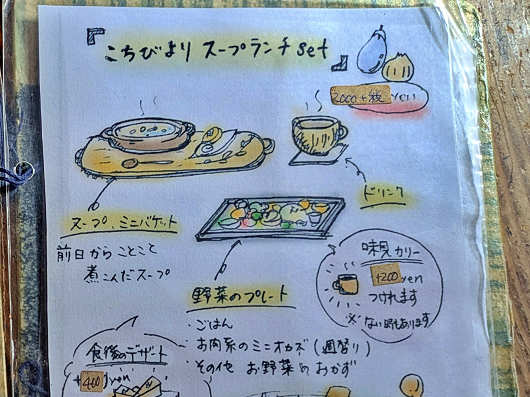 『こちびより スープランチset』
2000+税 yen
ドリンク
スープ、ミニバケット
前日から ことこと
煮こんだスープ
野菜のプレート
・ごはん
・お肉系のミニオカズ(週替り)
・その他 お野菜のおかず
味見カリー
+200yen
つけれます
※ない時もあります
食後のデザート
+400yen